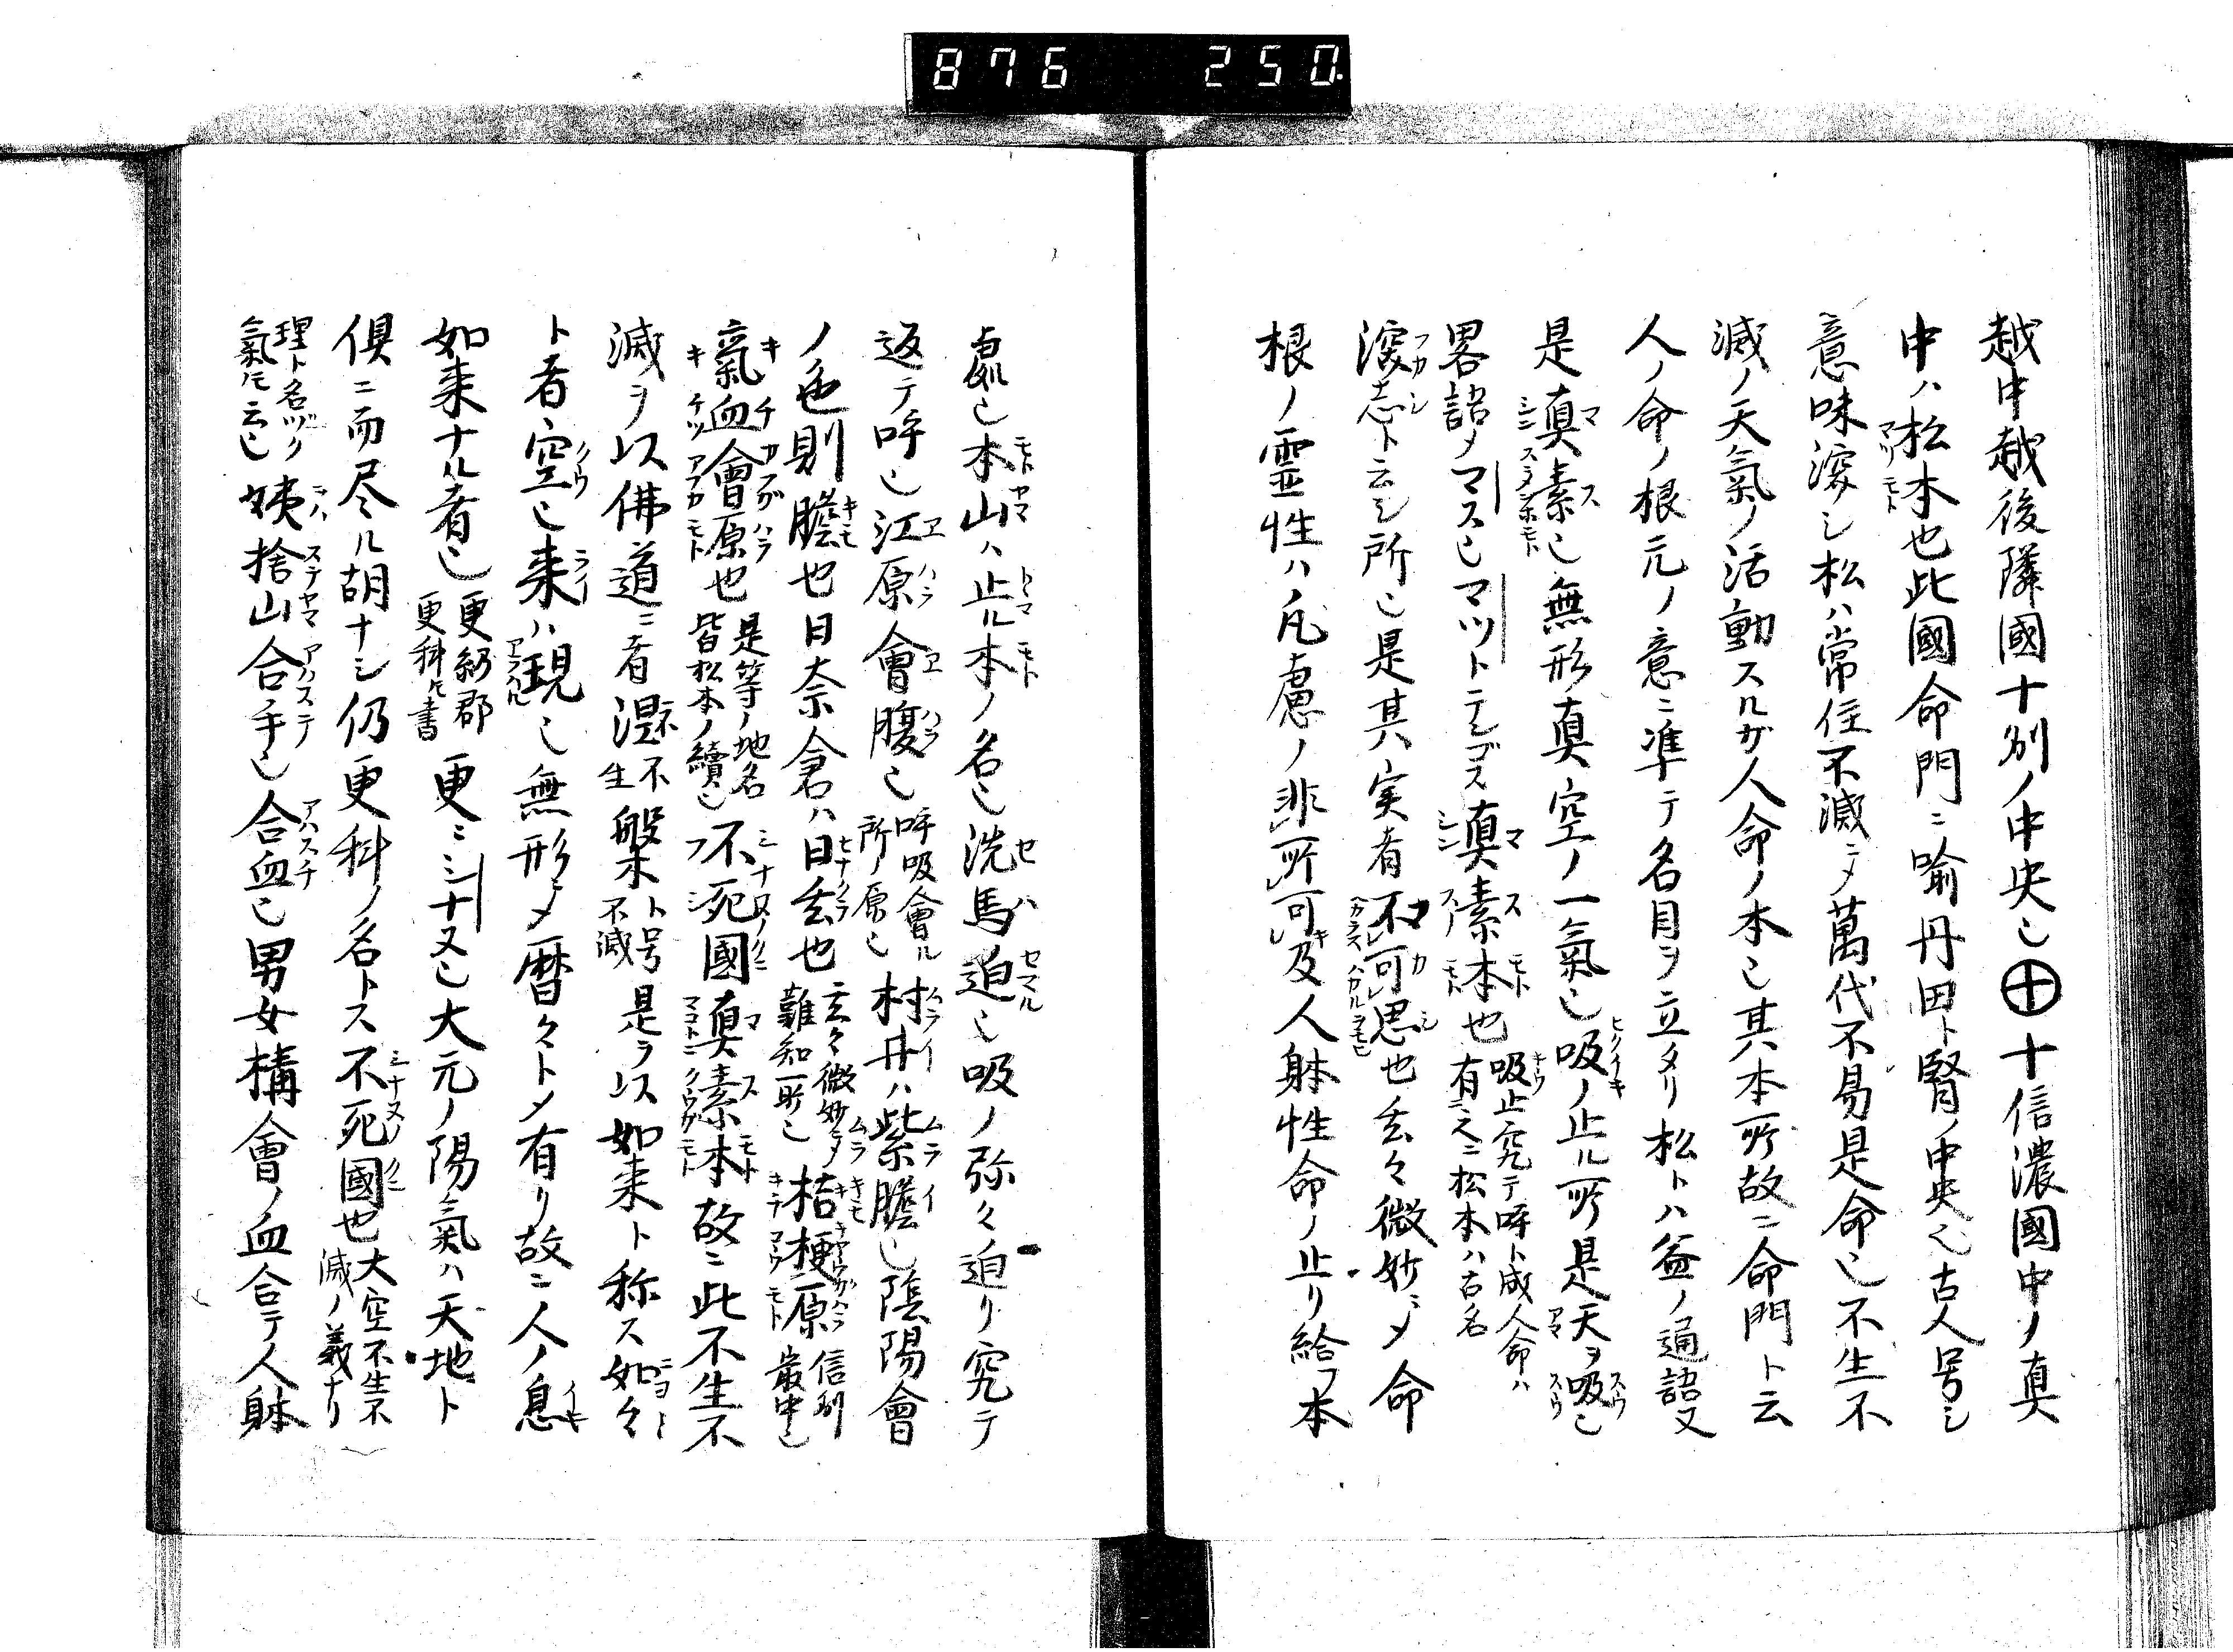 876 250
越中越後隣國十別ノ中央也⊕十信濃國中ノ真
中ハ松本也此國命門ニ喩丹田ト腎ノ中央也古人号シ
意味深シ松ハ常住不滅ニメ萬代不易是命也不生不
滅ノ天氣ノ活動スルガ人命ノ本也其本所故ニ命門ト云
人ノ命ノ根元ノ意ニ準テ名目ヲ立タリ松トハ益ノ通語又
是真素也無形真空ノ一氣也吸ノ止ル所是天ヲ吸也
畧語ノマス也マツトテンゴス真素本也 吸止究テ呼ト成人命ハ 有之ニ松本ハ古名
深志ト云シ所也是其実者不可思也玄々微妙ニメ命
根ノ霊性ハ凡慮ノ非所可及人躰性命ノ止リ給フ本
處也本山ハ止ル本ノ名也洗馬迫也吸ノ弥々迫リ究テ
返テ呼也江原會腹也 呼吸會ル 所ノ原也 村井ハ紫膽也陰陽會
ノ色則膽也日奈倉ハ日玄也 玄々微妙ニメ 難知所也 桔梗原 信州 最中也
氣血會原也 是等ノ地名 皆松本ノ續也 不死國真素本故ニ此不生不
滅ヲ以佛道ニ者涅 不生 般木 不滅 ト号是ヲ以如来ト称ス如々
ト者空也来ハ現也無形ニメ暦々トメ有リ故ニ人ノ息
如来ナル者也 更級郡 更科トモ書 更ニシナ又也大元ノ陽氣ハ天地ト
俱ニ而尽ル胡ナシ仍更科ノ名トス不死國也 大空不生不 滅ノ義ナリ
理ト名ヅク 氣トモ云也 姨捨山合手也合血也男女構會ノ血合テ人躰